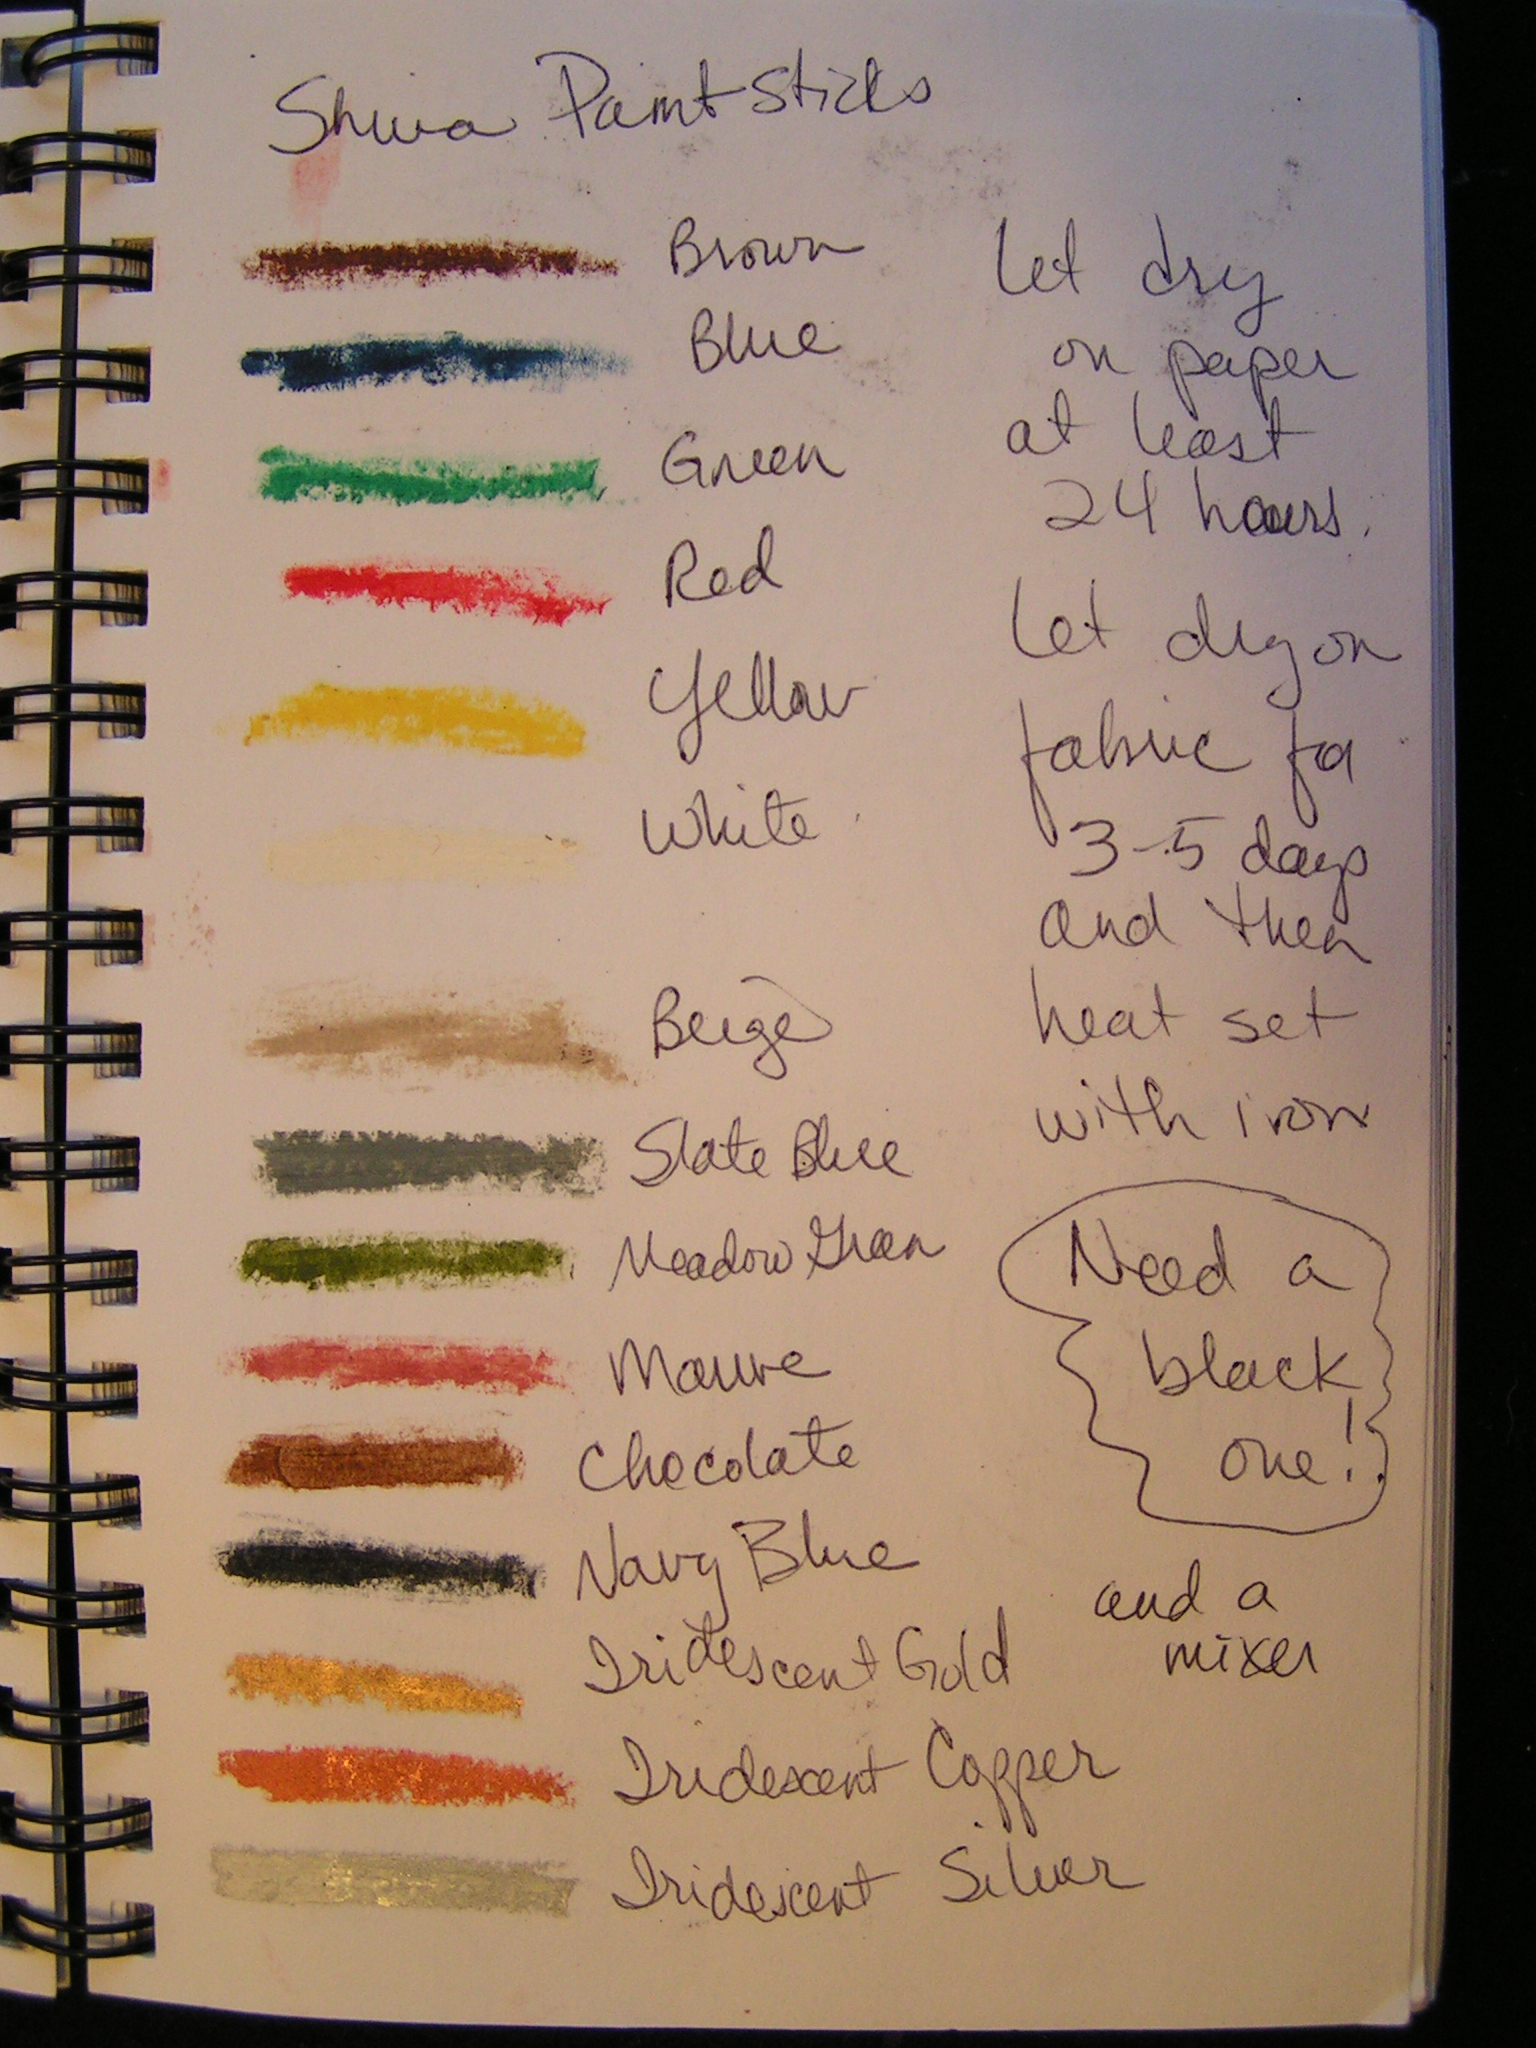 Shiva Paintsticks
Brown
Blue
Green
Red
Yellow
White
Beige
Slate Blue
Meadow Green
Mauve
Chocolate
Navy Blue
Iridescent Gold
Iridescent Copper
Iridescent Silver
Let dry
on paper
at least
24 hours.
Let dry on
fabric for
3-5 days
and then
heat set
with iron
Need a
black
one!
and a
mixer